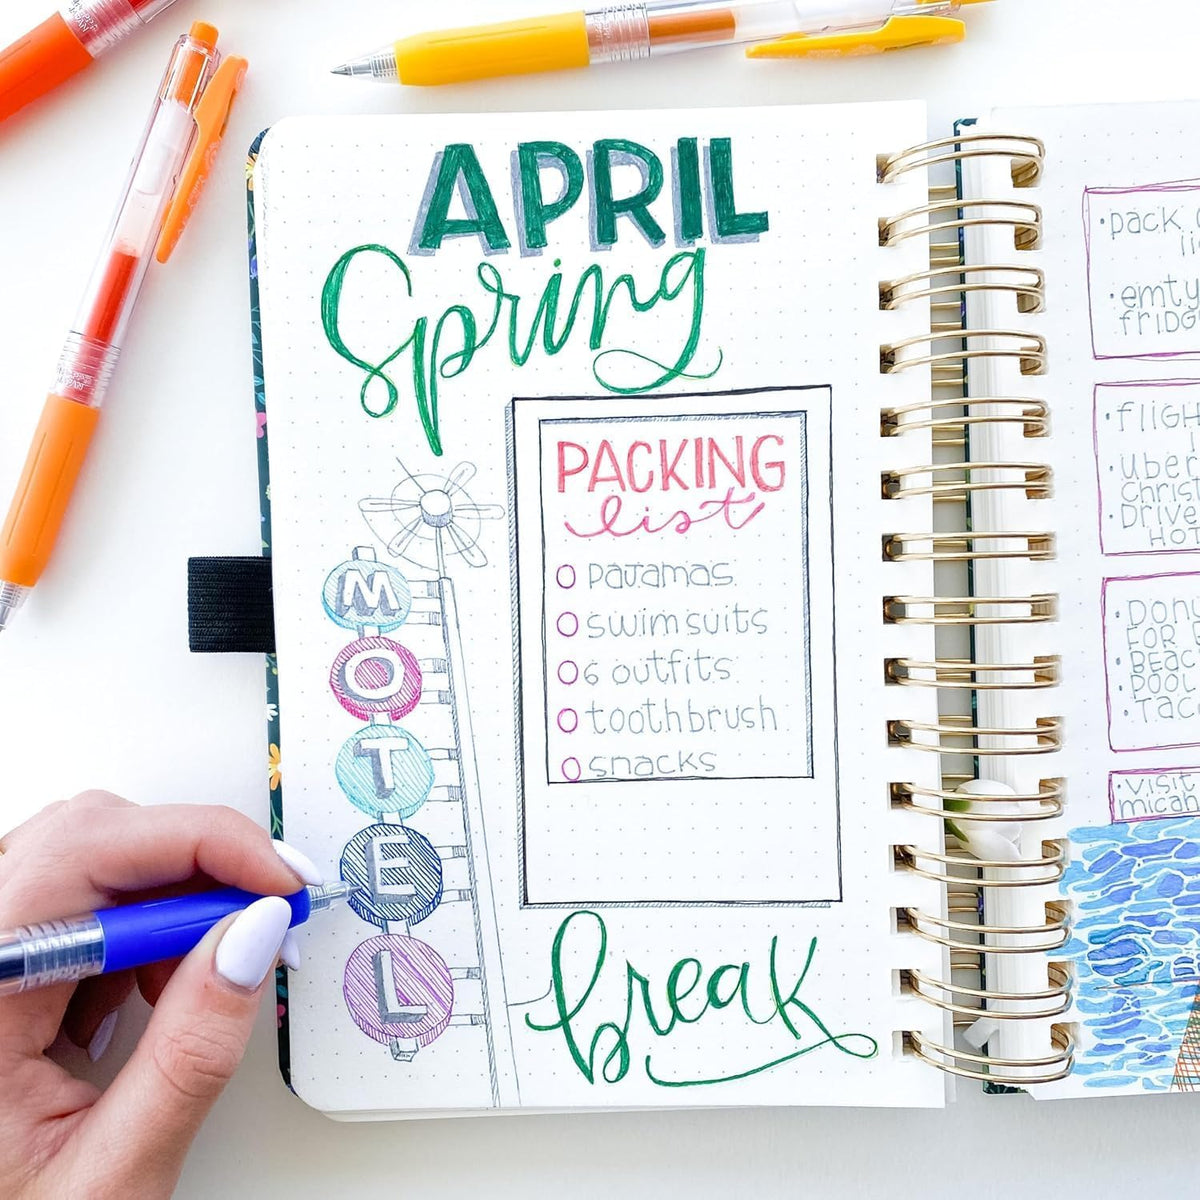 APRIL
Spring
PACKING
list
PAJAMAS
swimsuits
6 outfits
toothbrush
snacks
MOTEL
break
pack
emty
FRIDG
FLIGH
UBER
Christ
Drive
HOT
FOR
BEAC
POOL
TAC
VISIT
micah